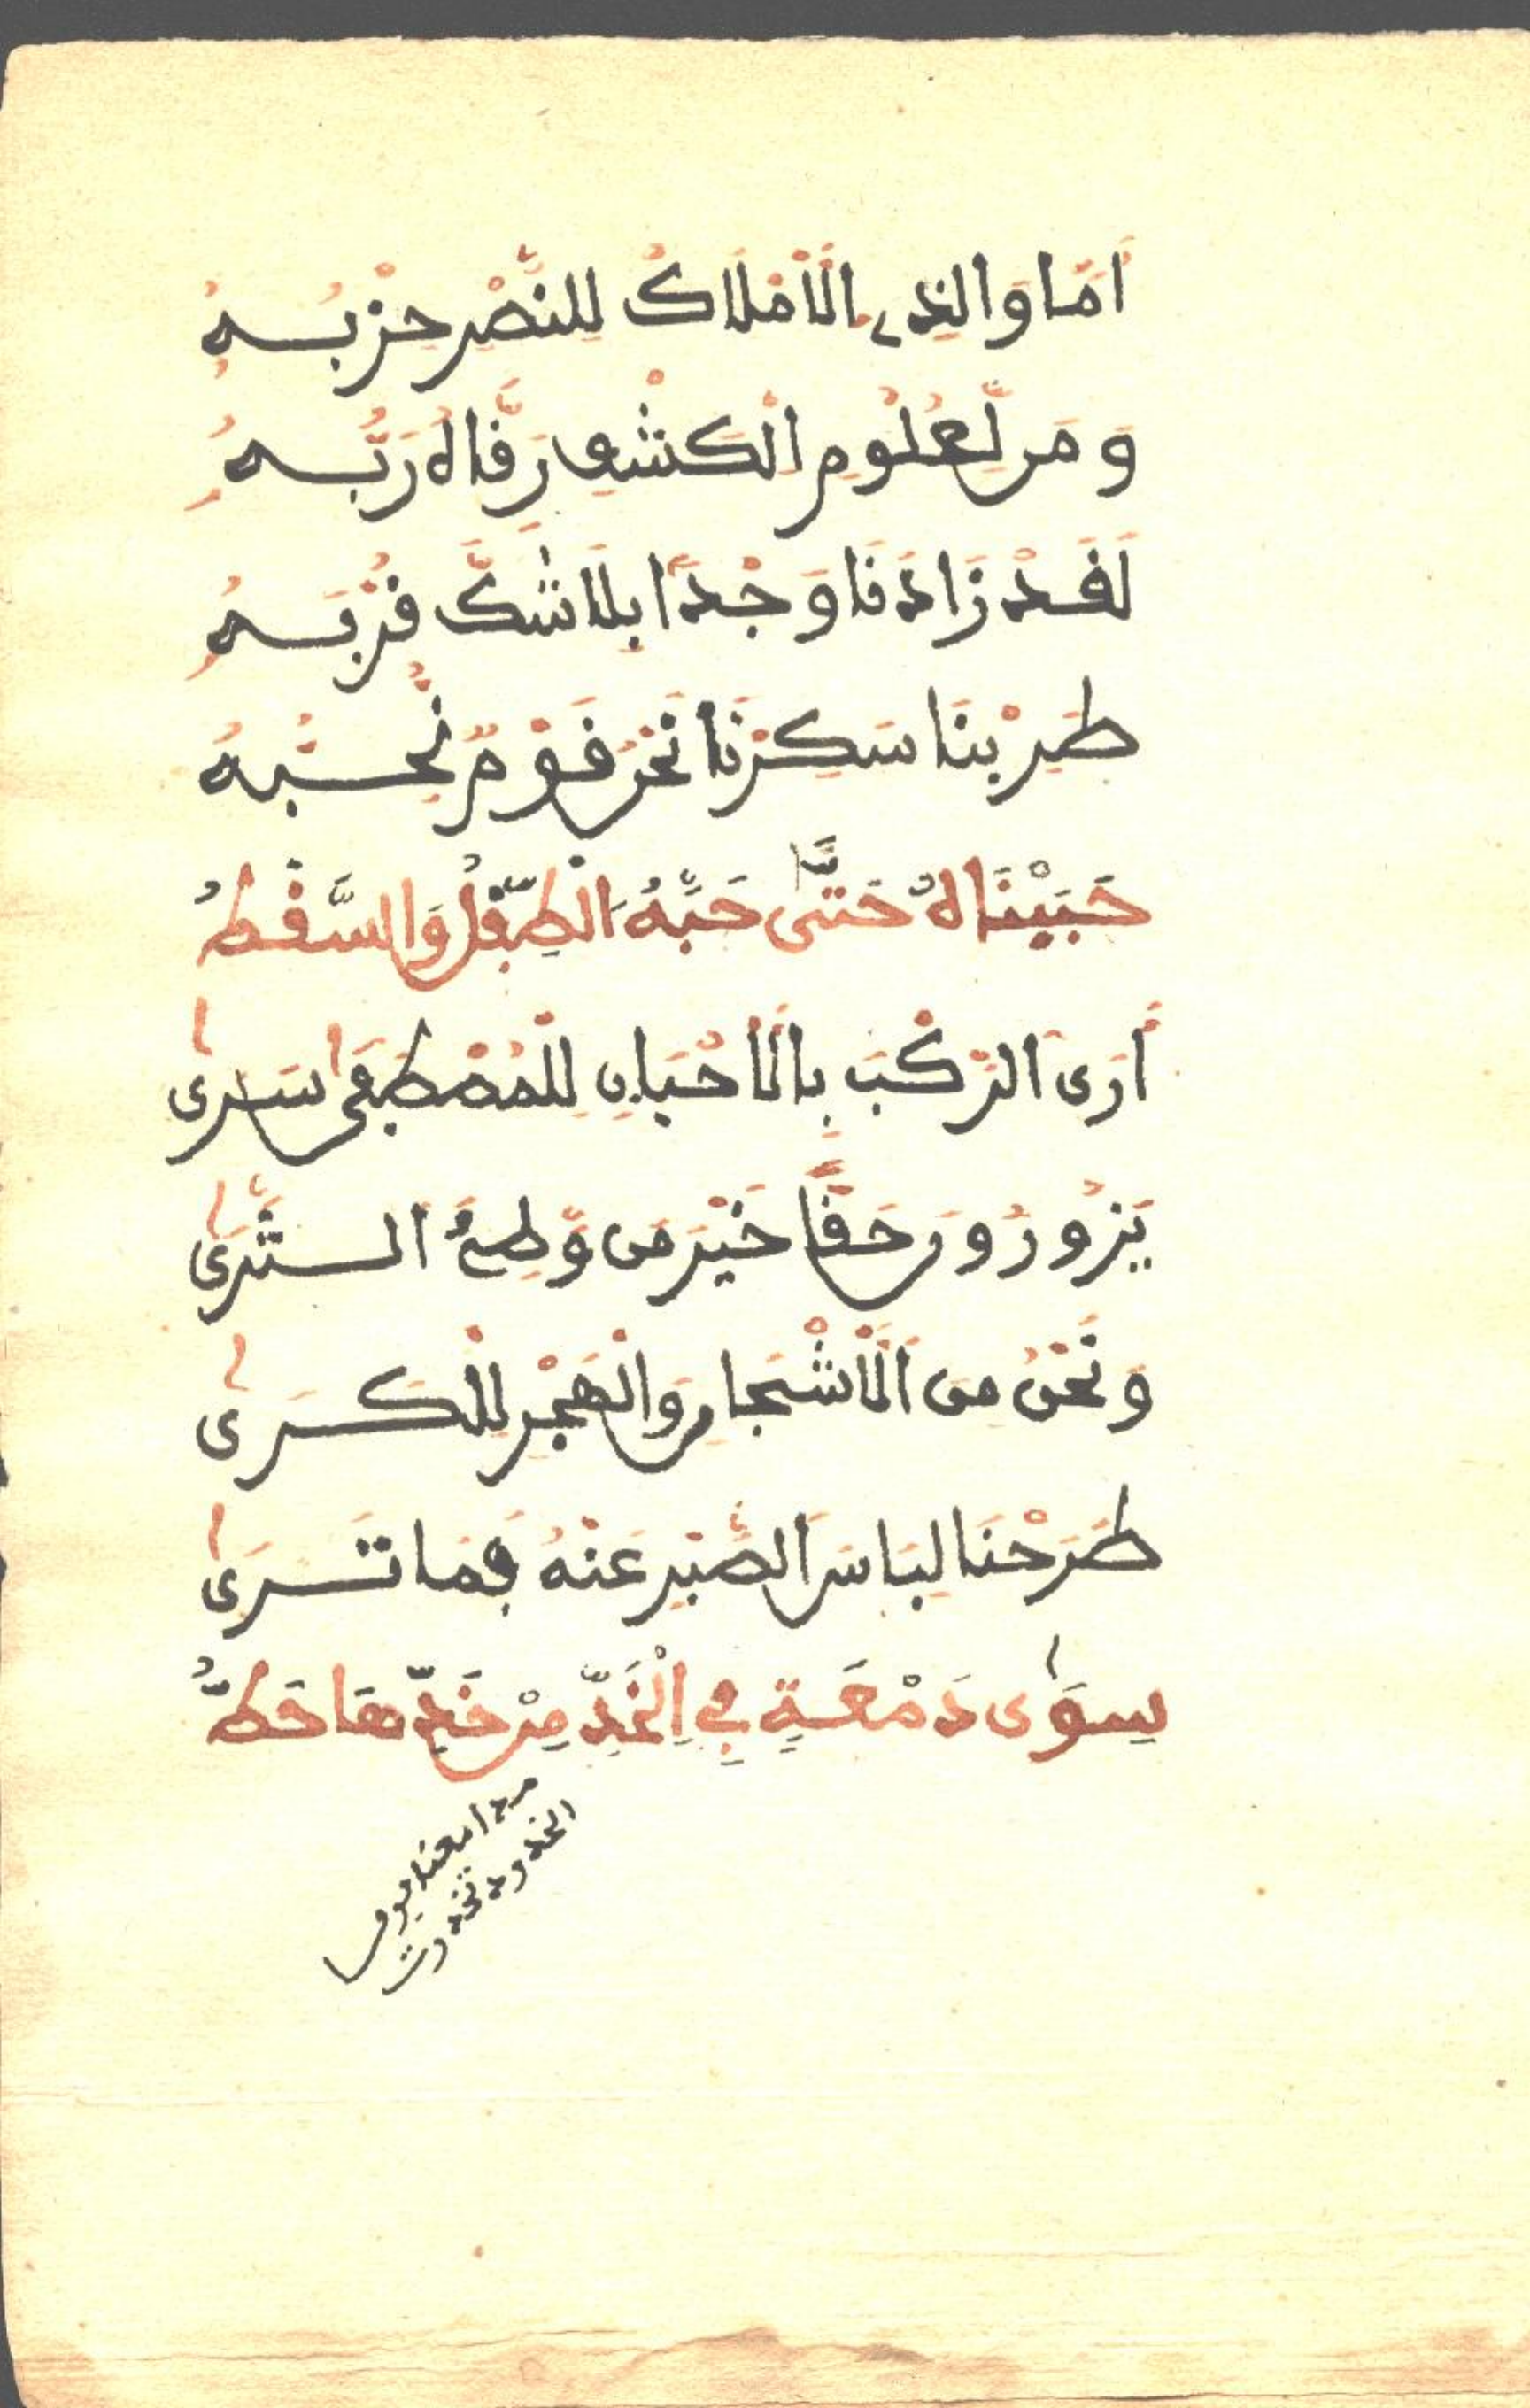 اَمَا وَالذِي الَامْلَاكُ لِلنَّصْرِ حِزْبُهُ
وَمَن لِّعُلُومِ الْكَشْفِ رَقَّاهُ رَبُّهُ
لَقَدْ زَادَنَا وَجْدًا بِلَا شَكٍّ قُرْبُهُ
طَرِبْنَا سَكِرْنَا نَحْنُ قَوْمٌ نُّحِبُّهُ
حَبَبْنَاهُ حَتَّى حَبَّهُ الطِّفْلُ وَالسَّقْطُ
اَرَى الرَّكْبَ بِالَاحْيَانِ لِلْمُصْطَفَى سَرَى
يَزُورُونَ حَقًّا خَيْرَ مَن وَّطِئَ الثَّرَى
وَنَحْنُ مِنَ الَاشْجَانِ وَالْهَجْرِ لِلْكَرَى
طَرَحْنَا لِبَاسَ الصَّبْرِ عَنْهُ فَمَا تَرَى
سِوَى دَمْعَةٍ فِي الْخَدِّ مِنْ خَدِّهَا خَطُّ
مدامعنا فوق
الخدود تخدرت